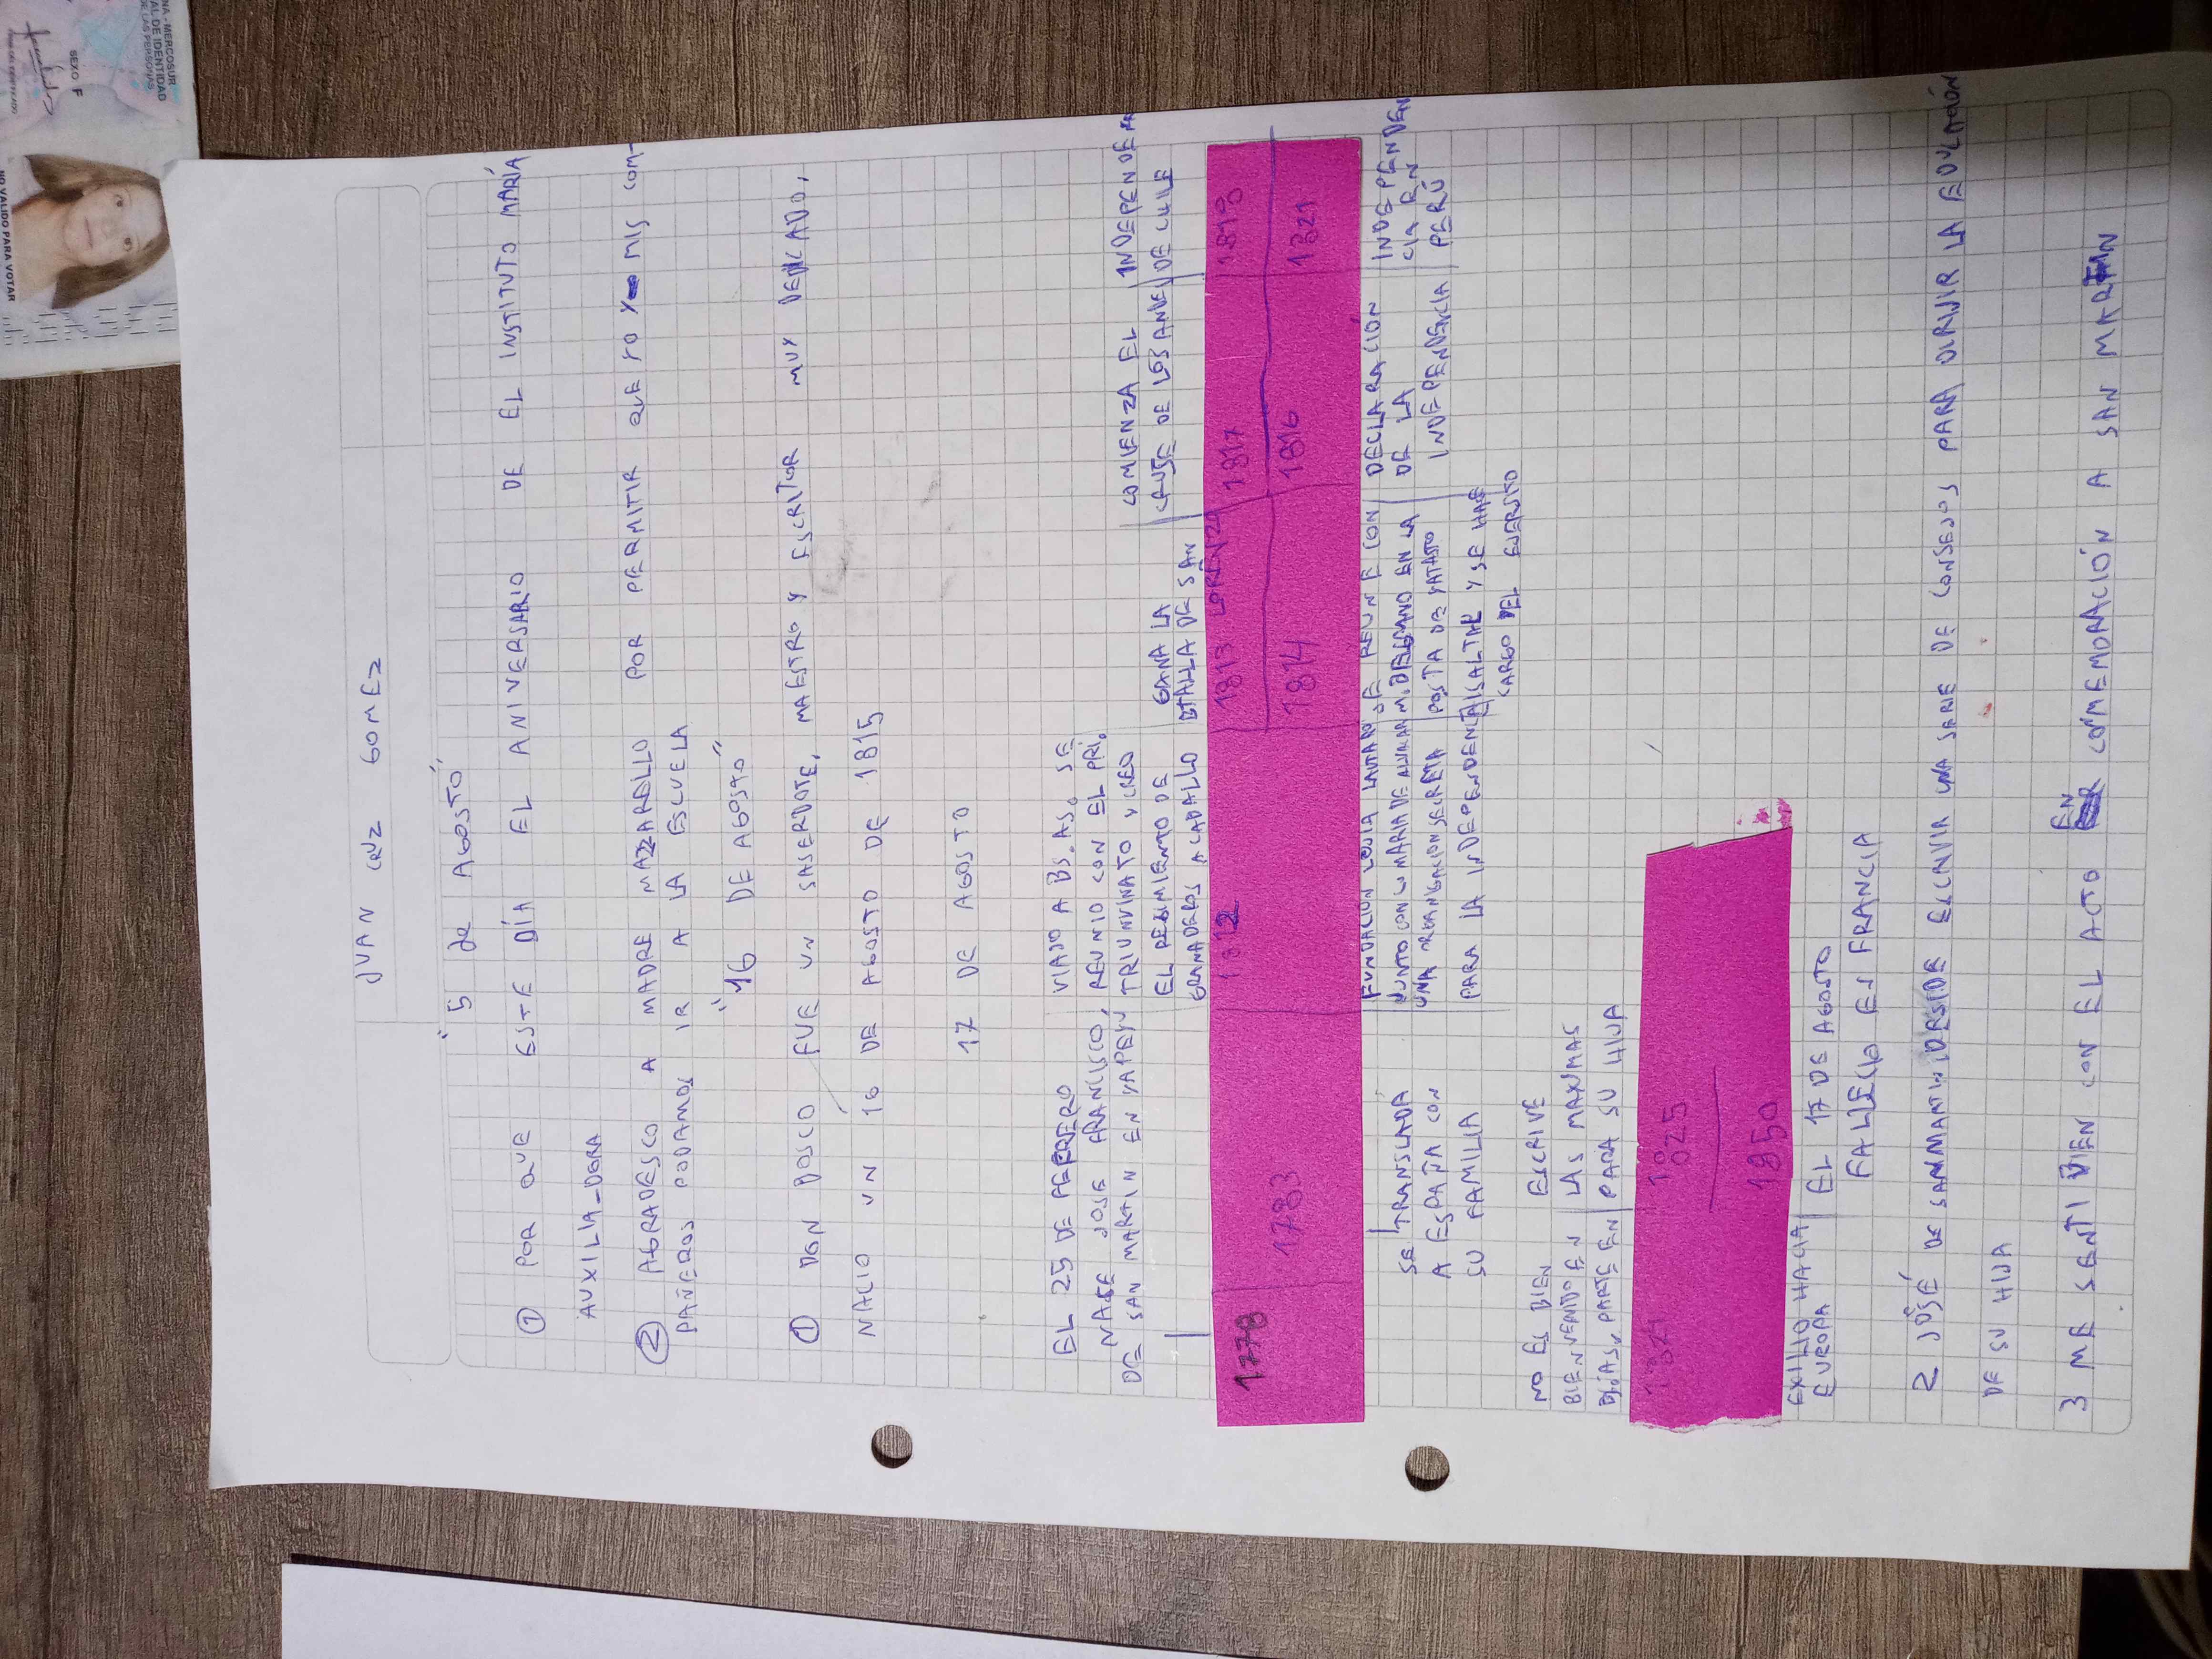 JUAN CRUZ GOMEZ
"5 de AGOSTO"
① POR QUE ESTE DÍA EL ANIVERSARIO DE EL INSTITUTO MARÍA
AUXILIA-DORA
② AGRADESCO A MADRE MAZZARELLO POR PERMITIR QUE YO Y MIS COM-
PAÑEROS PODAMOS IR A LA ESCUELA
"16 DE AGOSTO"
① DON BOSCO FUE UN SASERDOTE, MAESTRO Y ESCRITOR MUY DEDICADO,
NACIO UN 16 DE AGOSTO DE 1815
17 DE AGOSTO
EL 25 DE FEBRERO
NACE JOSE FRANCISCO,
DE SAN MARTIN EN YAPEYU
VIAJO A BS.AS. SE
REUNIO CON EL PRI.
TRIUNVINATO Y CREO
EL REGIMIENTO DE
GRANADEROS A CABALLO
GANA LA
BTALLA DE SAN
LORENZO
COMIENZA EL
CRUSE DE LOS ANDE
INDEPENDEN
DE CHILE
1778 1783 1812 1813 1817 1818
1814 1816 1821
SE TRANSLADA
A ESPAÑA CON
SU FAMILIA
FUNDACION LOGIA LAUTARO
JUNTO CON
UNA ORGANIGACION SECRETA
PARA LA INDEPENDENCIA
SE REUNE CON
M. BELGRANO EN LA
POSTA DE YATASTO
Y SE HASE
CARGO DEL EJERSITO
DECLARACIÓN
DE LA
INDEPENDENCIA
INDEPENDEN
CIA EN
PERÚ
NO ES BIEN
BIENVENIDO EN
BS.AS. PARTE EN
ESCRIVE
LAS MAXIMAS
PARA SU HIJA
1821 1825
1850
EXILIO HACIA
EUROPA
EL 17 DE AGOSTO
FALLECIO ES FRANCIA
2 JOSÉ DE SANMARTIN DESIDE ESCRIVIR UNA SERIE DE CONSEJOS PARA DIRIJIR LA EDUCACIÓN
DE SU HIJA
3 ME SENTI BIEN CON EL ACTO EN COMEMORACIÓN A SAN MARTIN
NA - MERCOSUR
AL DE IDENTIDAD
DE LAS PERSONAS
SEXO F
NO VALIDO PARA VOTAR